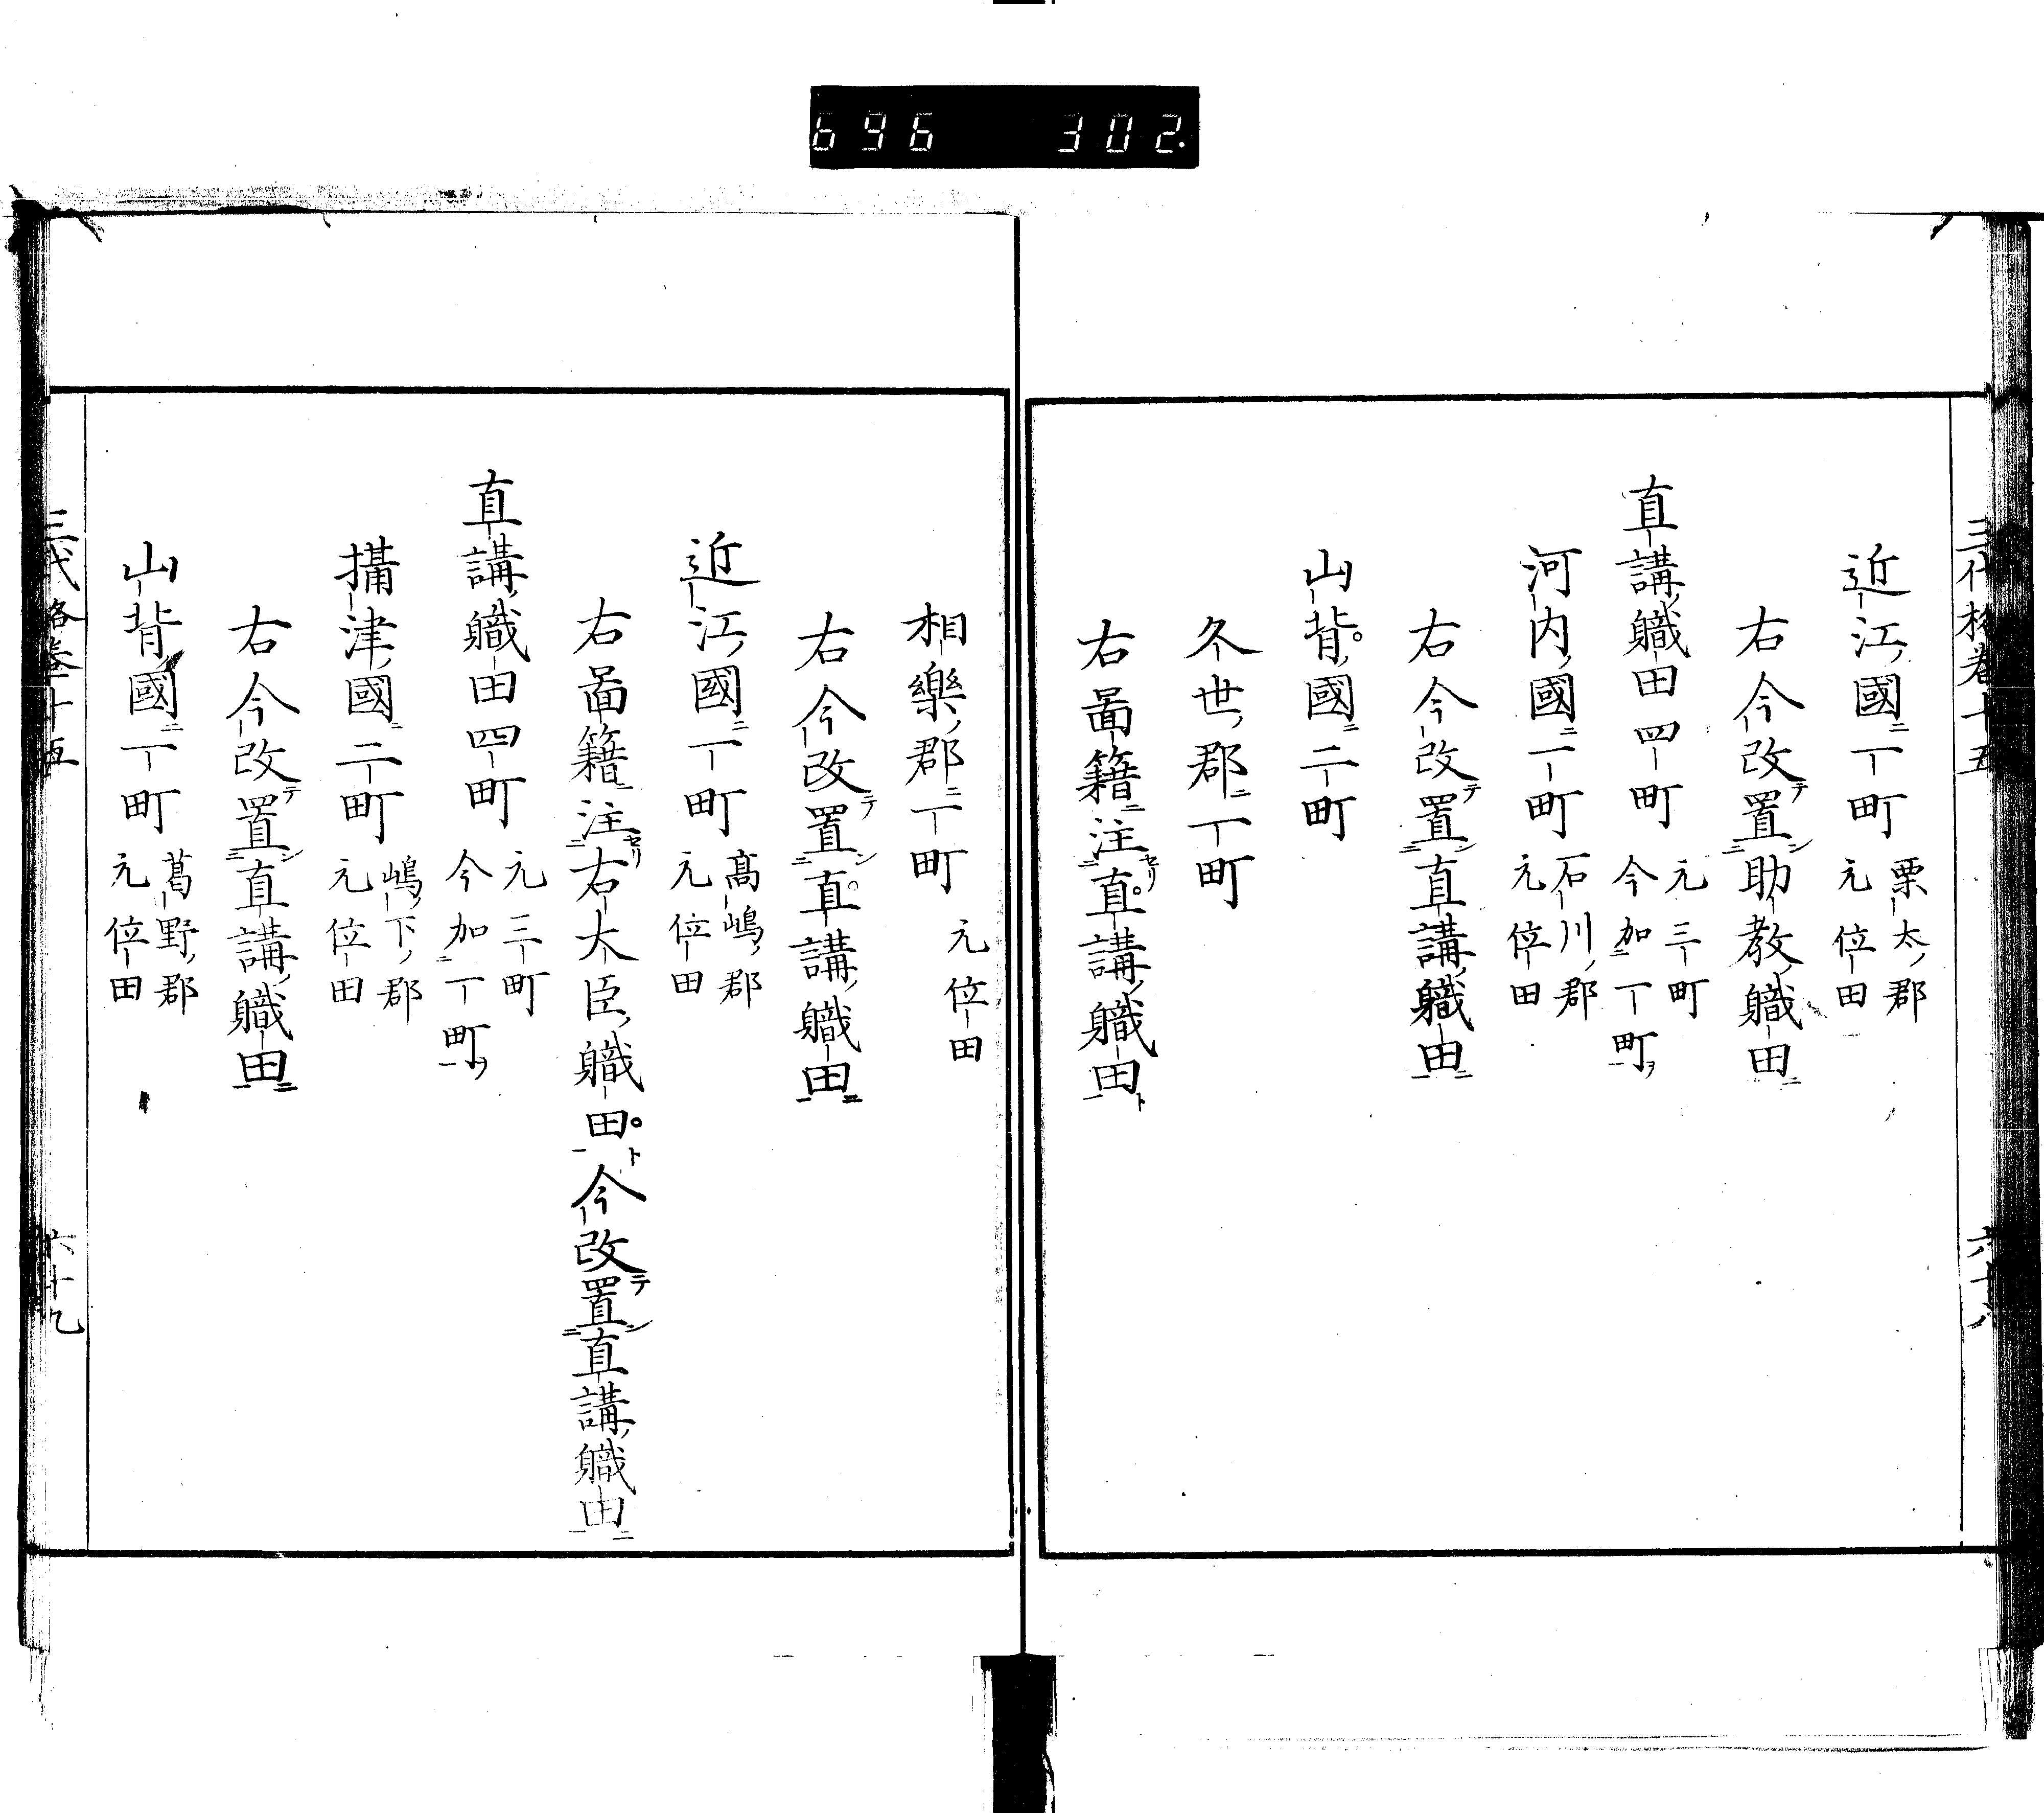 696 302.
三代格卷十五
六十八
近江國一町 栗太郡 元位田
右今改置助教軄田
直講軄田四町 元三町 今加一町
河内國一町 石川郡 元位田
右今改置直講軄田
山背國二町
久世郡一町
右啚籍注直講軄田
相樂郡一町 元位田
右今改置直講軄田
近江國一町 髙嶋郡 元位田
右啚籍注右大臣軄田今改置直講軄田
直講軄田四町 元三町 今加一町
攝津國二町 嶋下郡 元位田
右今改置直講軄田
山背國一町 葛野郡 元位田
三代格卷十五
六十九